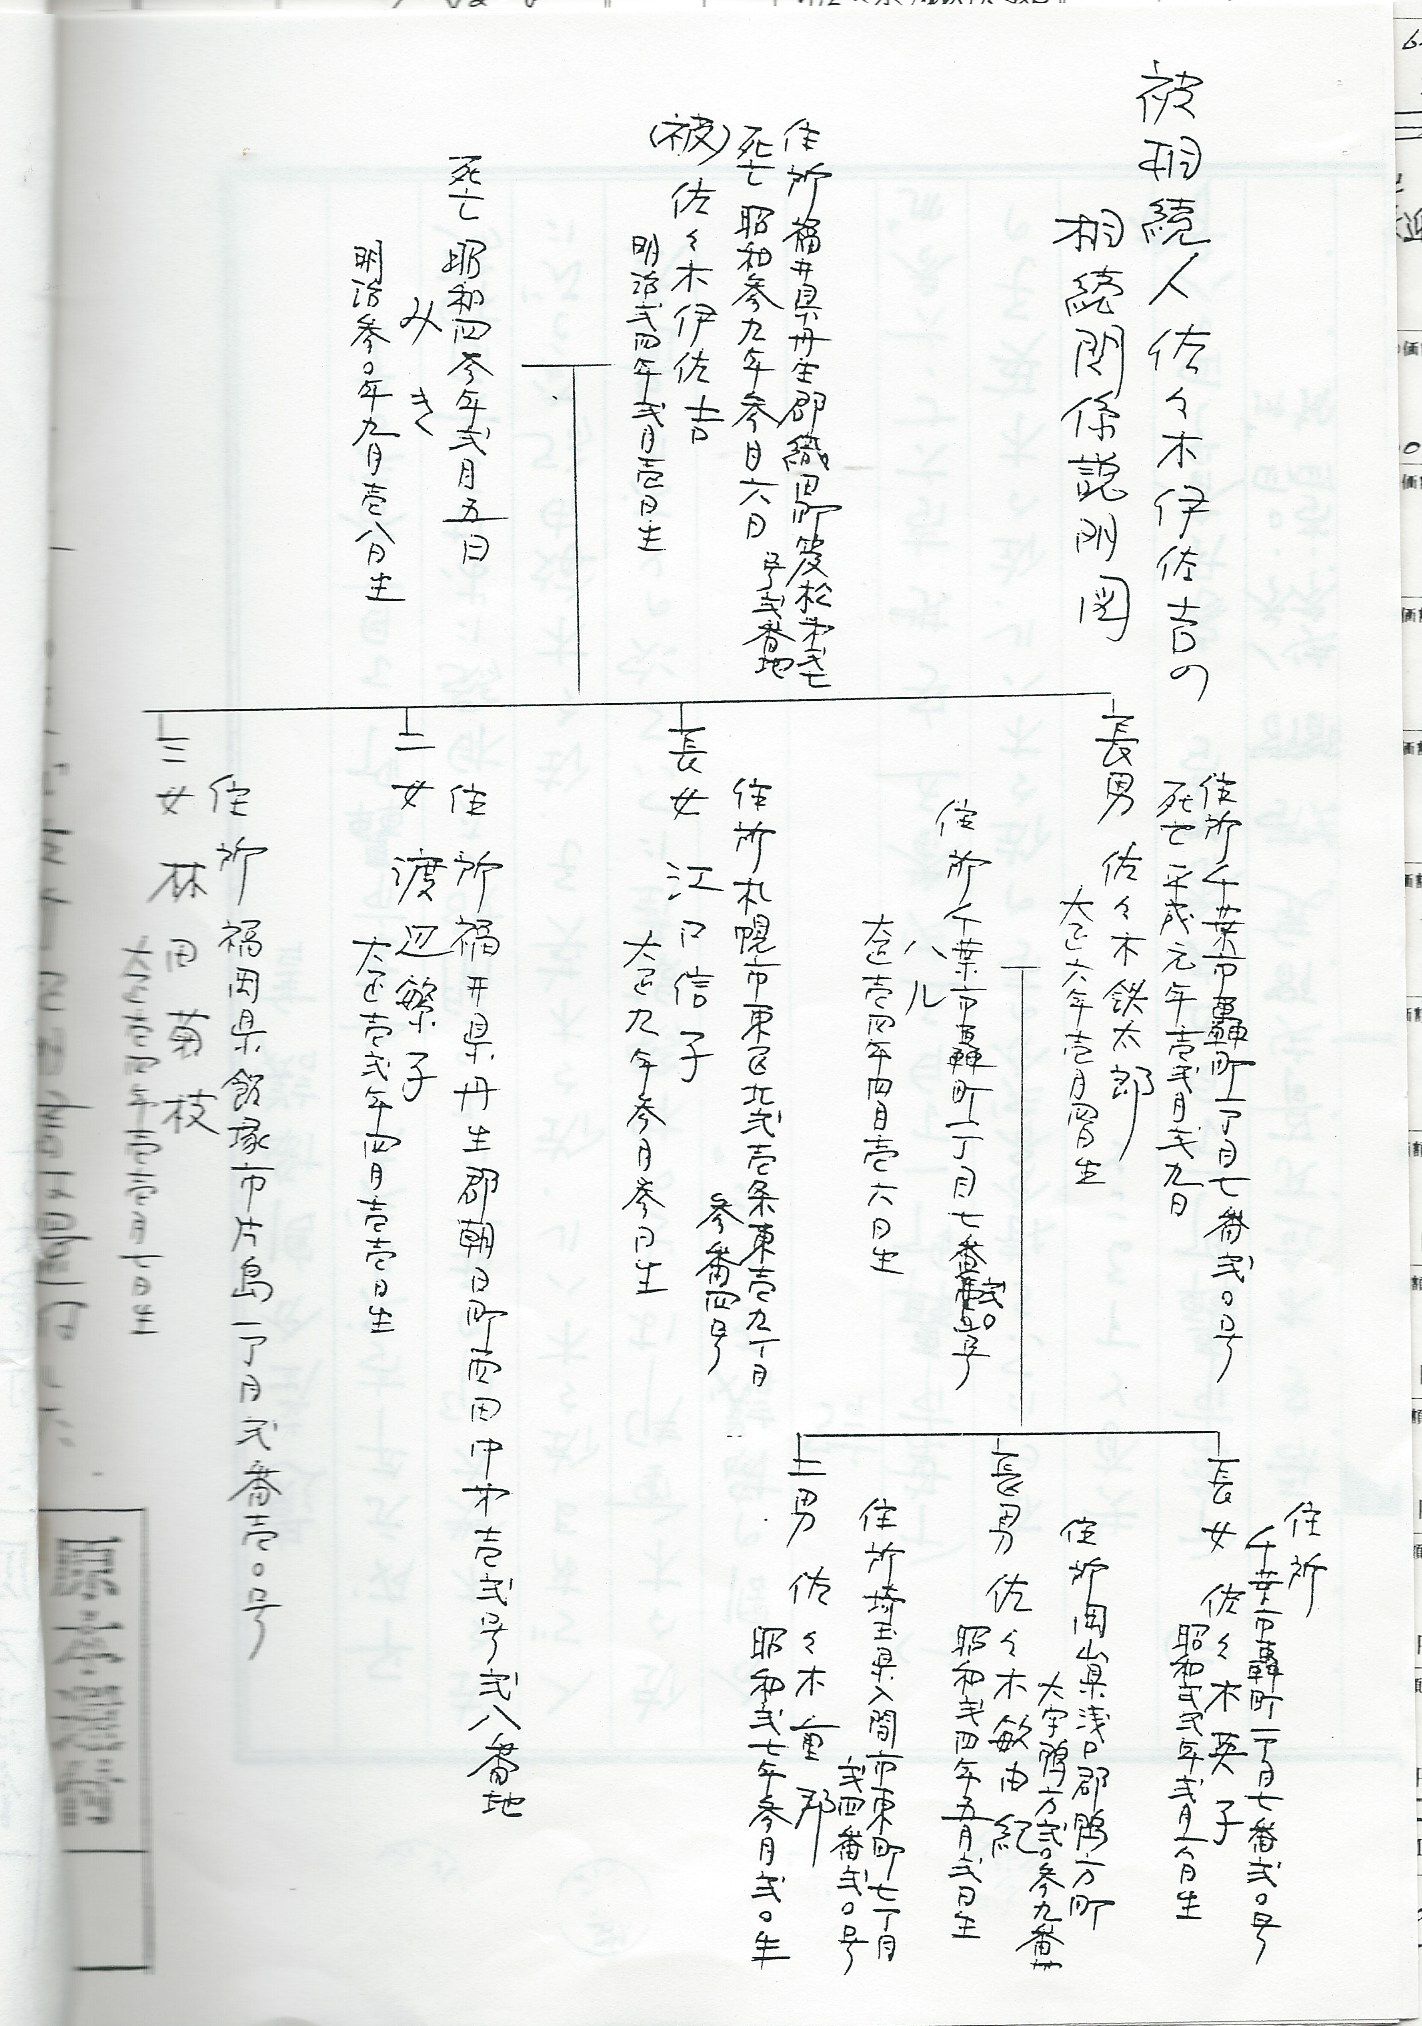 被相続人佐々木伊佐吉の
相続関係説明図
住所福井県丹生郡織田町笈松第弐七
号弐番地
死亡昭和参九年参月六日
(被)佐々木伊佐吉
明治弐四年弐月壱日生
死亡昭和四参年弐月五日
みき
明治参〇年九月壱八日生
住所千葉市轟町一丁目七番弐〇号
死亡平成元年壱弐月弐九日
長男 佐々木鉄太郎
大正六年壱月四日生
住所千葉市轟町一丁目七番弐〇号
ハル
大正壱四年四月壱六日生
住所札幌市東区北弐壱条東壱九丁目
参番四号
長女 江口信子
大正九年参月参日生
住所福井県丹生郡朝日町西田中第壱弐号弐八番地
二女 渡辺繁子
大正壱弐年四月壱壱日生
住所福岡県飯塚市片島一丁目弐番壱〇号
三女 林田菊枝
大正壱四年壱壱月七日生
住所
千葉市轟町一丁目七番弐〇号
長女 佐々木英子
昭和弐弐年弐月 日生
住所岡山県浅口郡鴨方町
大字鴨方弐〇参九番
長男 佐々木敏由紀
昭和弐四年五月弐日生
住所埼玉県入間市東町七丁目
弐四番弐〇号
二男 佐々木重郎
昭和弐七年参月弐〇生
原本還付